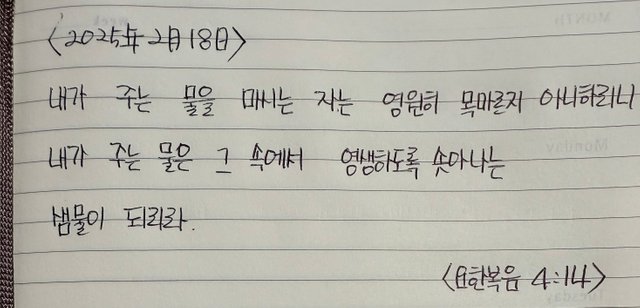 <2025年 2月 18日>
내가 주는 물을 마시는 자는 영원히 목마르지 아니하리니
내가 주는 물은 그 속에서 영생하도록 솟아나는
샘물이 되리라.
<요한복음 4:14>